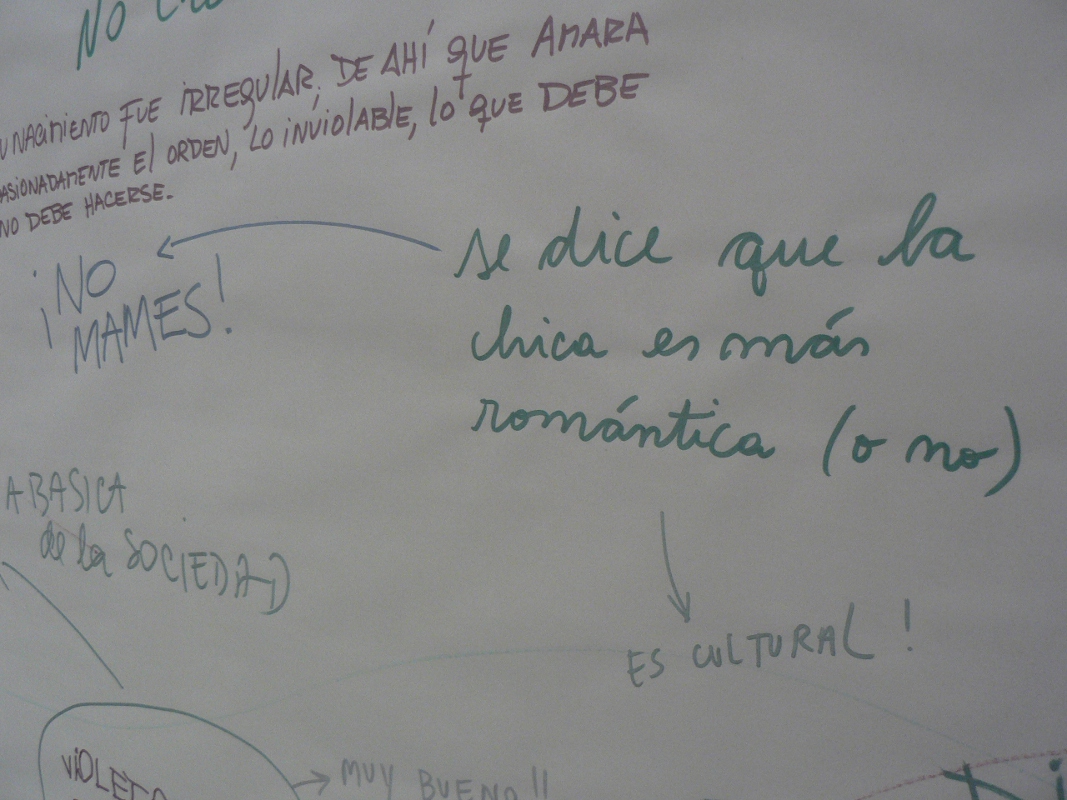 NO
NACIMIENTO FUE IRREGULAR, DE AHÍ QUE AMARA
ASIONADAMENTE El ORDEN, LO INVIOLABLE, lo QUE DEBE
NO DEBE HACERSE.
¡NO
¡MAMES!
se dice que la
chica es más
romántica (o no)
A BASICA
de la SOCIEDAD
ES CULTURAL!
VIOLETA
MUY BUENO!!